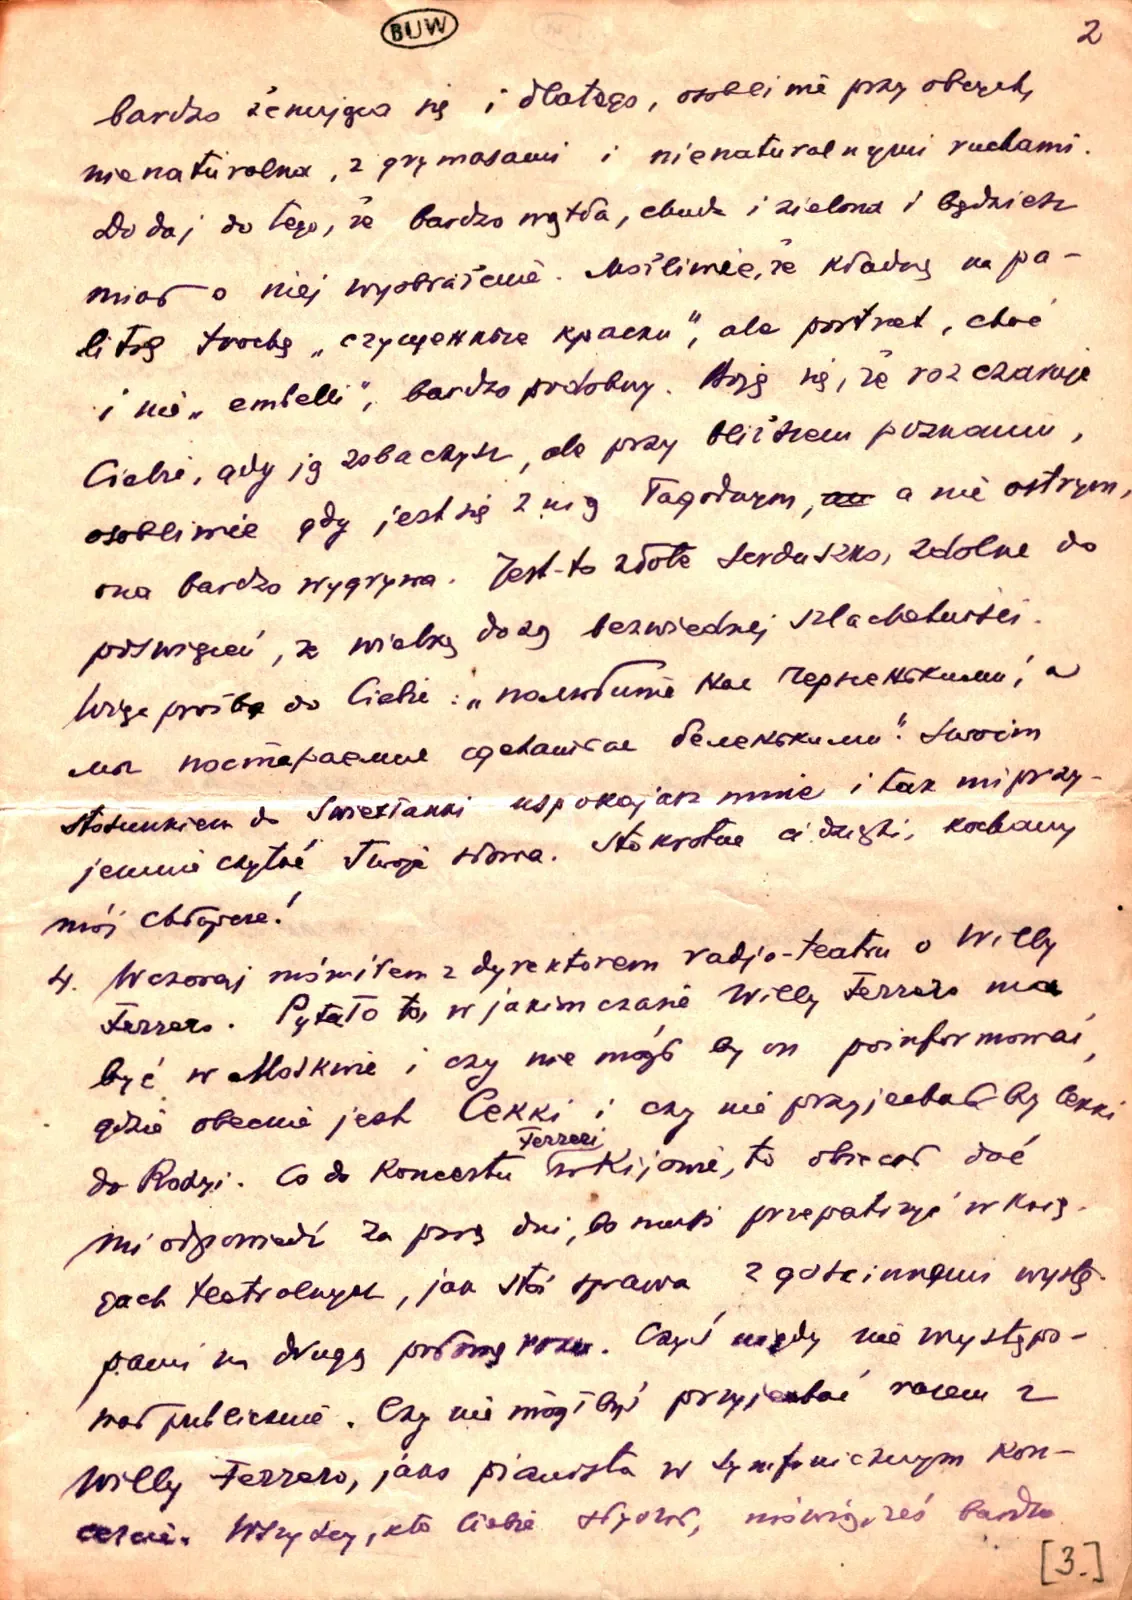 BUW
2
bardzo żenująca się i dlatego, osobliwie przy obcych,
nienaturalna, z grymasami i nienaturalnymi ruchami.
Dodaj do tego, że bardzo wątła, chuda i zielona i będziesz
miał o niej wyobrażenie. Możliwie, że kładnę na pa-
litrę trochę „сгущенные краски”, ale portret, choć
i nie „embelli”, bardzo podobny. Boję się, że rozczaruje
Ciebie, gdy ją zobaczysz, ale przy bliższem poznaniu,
osobliwie gdy jest się z nią łagodnym, a nie ostrym,
ona bardzo wygrywa. Jest-to złote serduszko, zdolne do
poświęceń, z wielką dozą bezwiednej szlachetności.
Więc prośba do Ciebie: „полюбите нас черненькими, а
мы постараемся сделаться беленькими”. Swoim
stosunkiem do Świetłanki uspokajasz mnie i tak mi przy-
jemnie czytać Twoje słowa. Stokrotne ci dzięki, kochany
mój chłopcze!
4. Wczoraj mówiłem z dyrektorem radjo-teatru o Willy
Ferrero. Pytał to, w jakim czasie Willy Ferrero ma
być w Moskwie i czy nie mógł by on poinformować,
gdzie obecnie jest Cekki i czy nie przyjechał by Cekki
do Rodzi. Co do koncertu Ferreri w Kijowie, to obiecał dać
mi odpowiedź za parę dni, bo musi przepatrzyć w księ-
gach teatralnych, jak stoi sprawa z gościnnemi wystę-
pami na drugą połowę roku. Czyś nigdy nie występo-
wał publicznie. Czy nie mógłbyś przyjechać razem z
Willy Ferrero, jako pianista w symfonicznym kon-
cercie. Wszyscy, kto Ciebie słyszał, mówią, żeś bardzo
[3.]